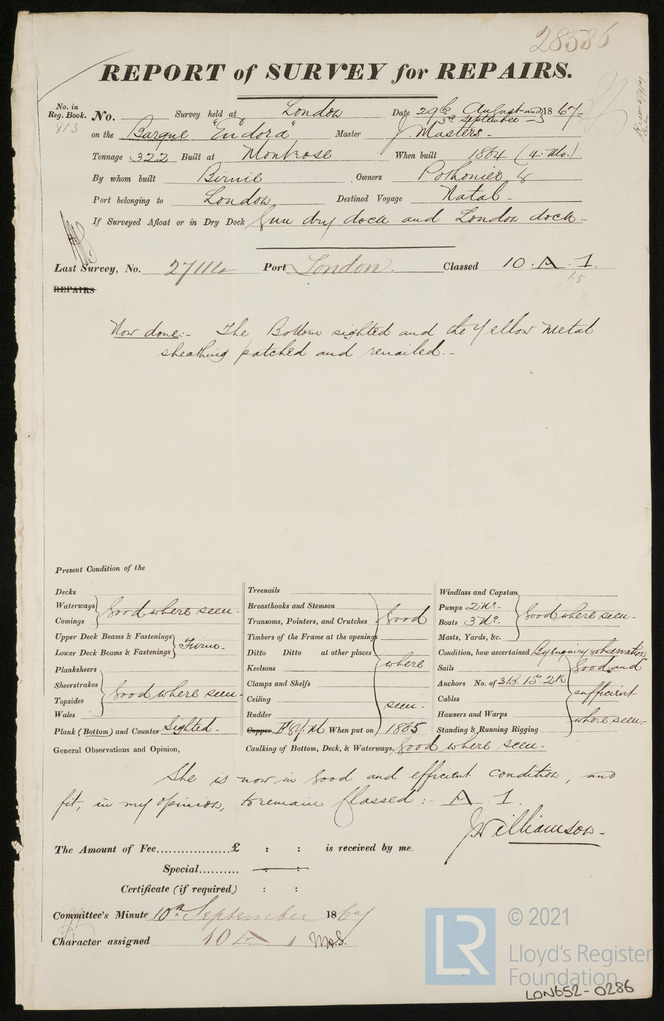 28586
REPORT of SURVEY for REPAIRS.
No. in Reg. Book. No. Survey held at London Date 29th August and 1867
813 3rd September
on the Barque "Eudora" Master J. Masters
Tonnage 322 Built at Montrose When built 1864 (4. Mo.)
By whom built Birnie Owners &
Port belonging to London Destined Voyage Natal
If Surveyed Afloat or in Dry Dock Gun dry dock and London dock
Last Survey, No. Port London Classed 10 . A . 1.
65
REPAIRS
Now done:- The Bottom sighted and the Yellow Metal
sheathing patched and renailed.-
Present Condition of the
Decks
Waterways Good where seen-
Comings
Upper Deck Beams & Fastenings
Lower Deck Beams & Fastenings Firm-
Planksheers
Sheerstrakes
Topsides Good where seen
Wales
Plank (Bottom) and Counter Sighted-
General Observations and Opinion,
Treenails
Breasthooks and Stemson
Transoms, Pointers, and Crutches Good
Timbers of the Frame at the openings
Ditto Ditto at other places
Keelsons where
Clamps and Shelfs
Ceiling
Rudder seen-
Copper When put on 1865
Caulking of Bottom, Deck, & Waterways, Good where seen-
Windlass and Capstan
Pumps 2 No. Good where seen-
Boats 3 No.
Masts, Yards, &c.
Condition, how ascertained By Inquiry & observation
Sails Good and
Anchors No. of 3B 1S 2K
Cables sufficient
Hawsers and Warps
Standing & Running Rigging where seen-
She is now in Good and efficient Condition, and
fit, in my opinion, to remain Classed:- A 1.
J Williamson-
The Amount of Fee................£ : : is received by me.
Special.......... : :
Certificate (if required) : :
Committee's Minute 10th September 1867
Character assigned 10 A 1
© 2021
LR Lloyd's Register
Foundation
LON652-0286